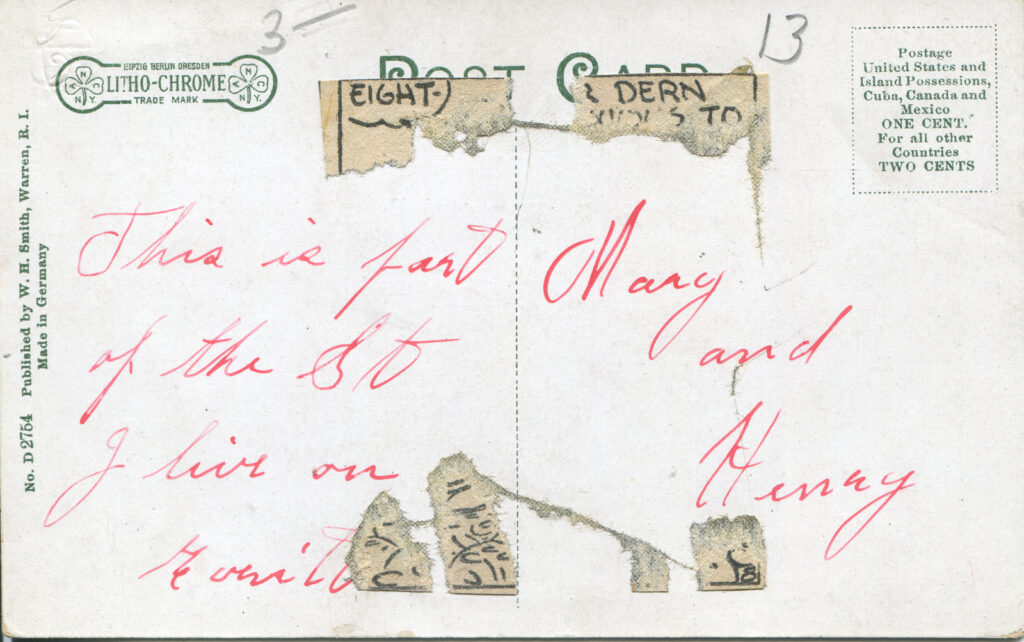 3 —
13
LEIPZIG BERLIN DRESDEN
LITHO-CHROME
TRADE MARK
N Y C
N Y C
POST CARD
EIGHT-)
DERN
S TO
Postage
United States and
Island Possessions,
Cuba, Canada and
Mexico
ONE CENT.
For all other
Countries
TWO CENTS
No. D 2754 Published by W. H. Smith, Warren, R. I.
Made in Germany
This is part
of the St
I live on
Mary
and
Henry